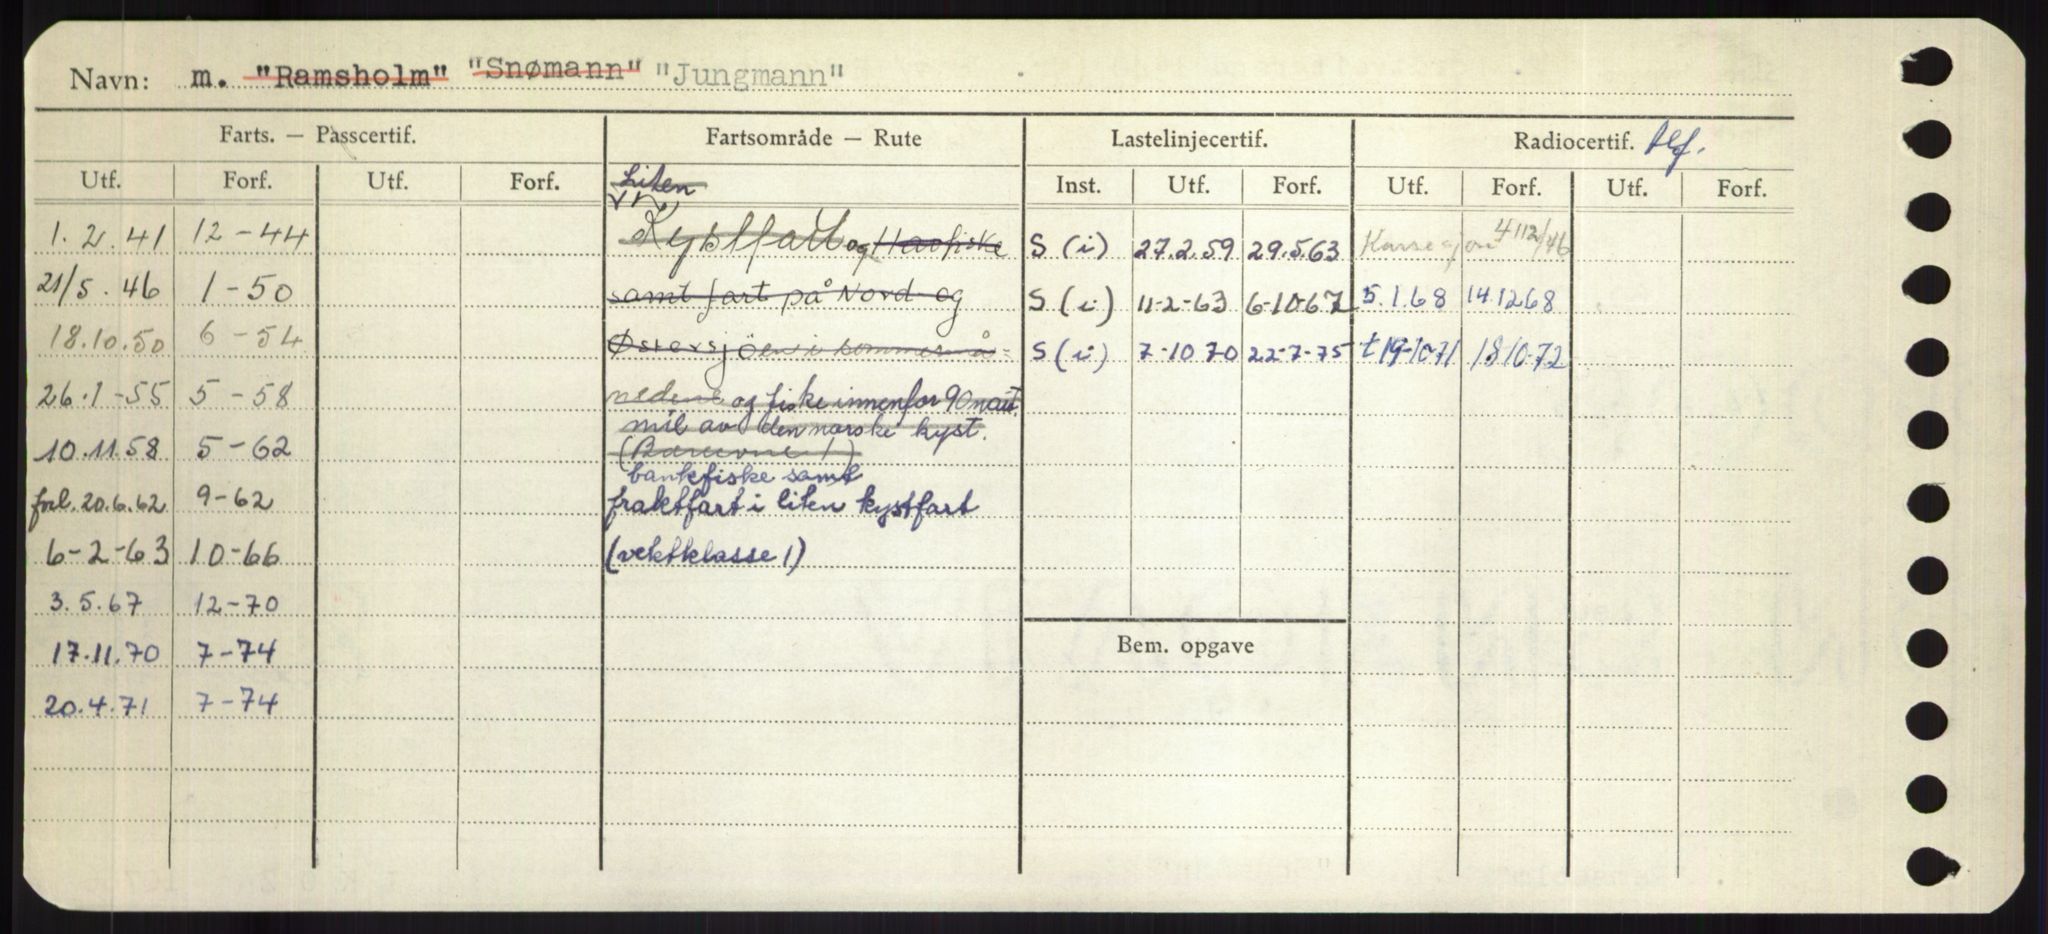 Navn: m. "Ramsholm" "Snømann" "Jungmann"
Farts. — Passcertif. Fartsområde — Rute Lastelinjecertif. Radiocertif. tlf.
Utf. Forf. Utf. Forf. Inst. Utf. Forf. Utf. Forf. Utf. Forf.
Liten
1.2.41 12-44 Kystfart og Havfiske S (i) 27.2.59 29.5.63
21/5.46 1-50 samt fart på Nord- og S (i) 11-2-63 6-10-67 5.1.68 14.12 68
18.10.50 6-54 Østersjöen i sommermå- S (i) 7-10 70 22-7-75 t 19-10-71 18 10-72
26.1-55 5-58 nedene og fiske innenfor 90 naut.
mil av den norske kyst.
10.11.58 5-62
bankfiske samt
forl. 20.6.62 9-62 fraktfart i liten kystfart
6-2-63 10-66 (vektklasse 1)
3.5.67 12-70
17.11.70 7-74 Bem. opgave
20.4.71 7-74